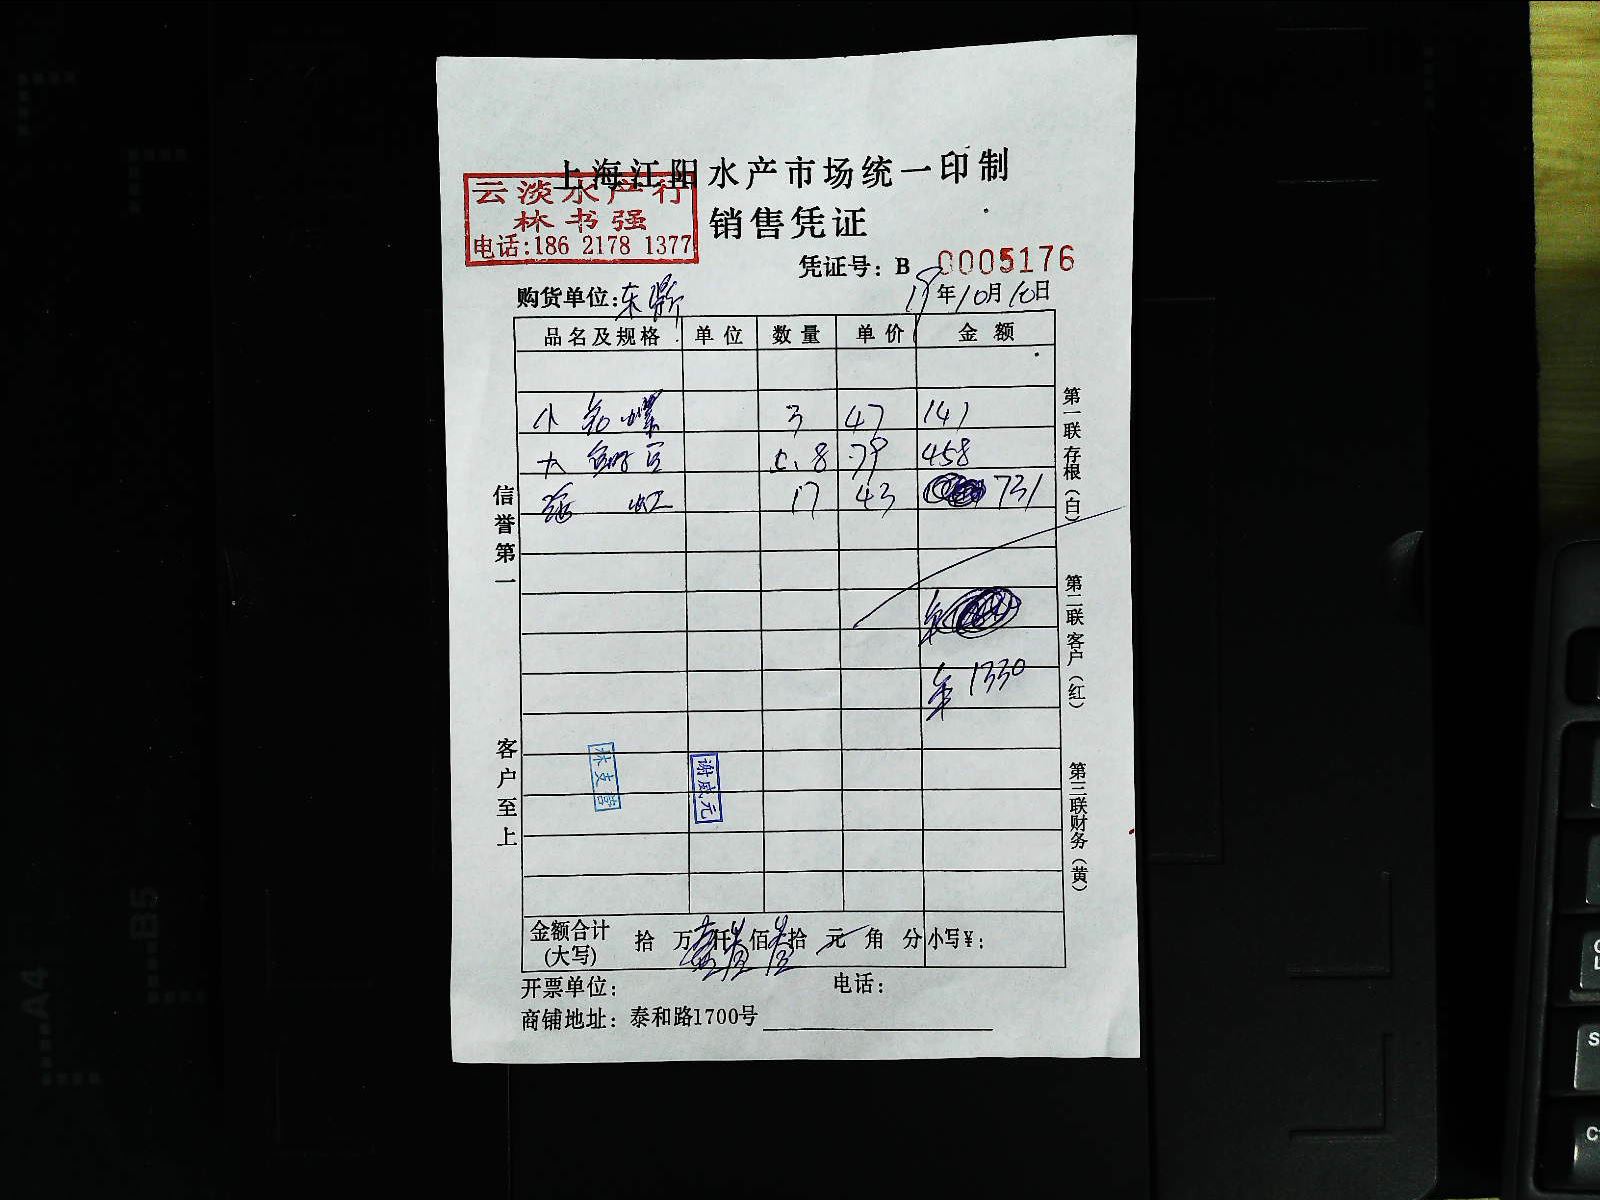 上海江阳水产市场统一印制
云淡水产行
林书强
电话:186 2178 1377
销售凭证
凭证号: B 0005176
购货单位:东鼎 18年10月10日
品名及规格 单位 数量 单价 金额
小 3 47 141
大 5.8 79 458
虹 17 43 731
1330
信誉第一
客户至上
第一联存根(白)
第二联客户(红)
第三联财务(黄)
谢威元
金额合计(大写) 拾 万 壹 仟 叁 佰 叁 拾 元 角 分 小写¥:
开票单位: 电话:
商铺地址: 泰和路1700号